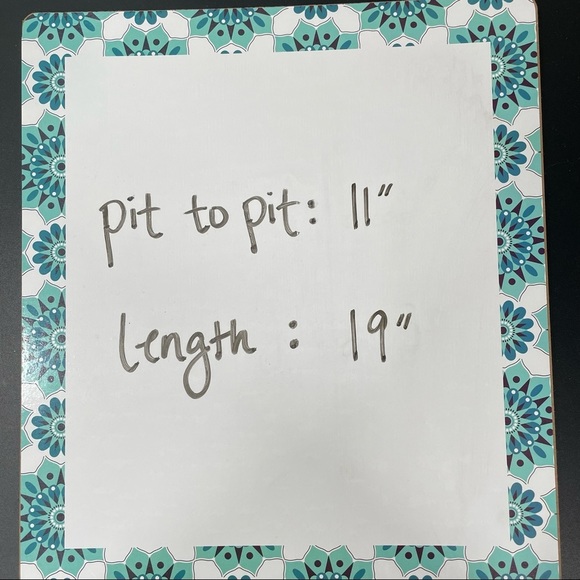 pit to pit: 11"
length : 19"